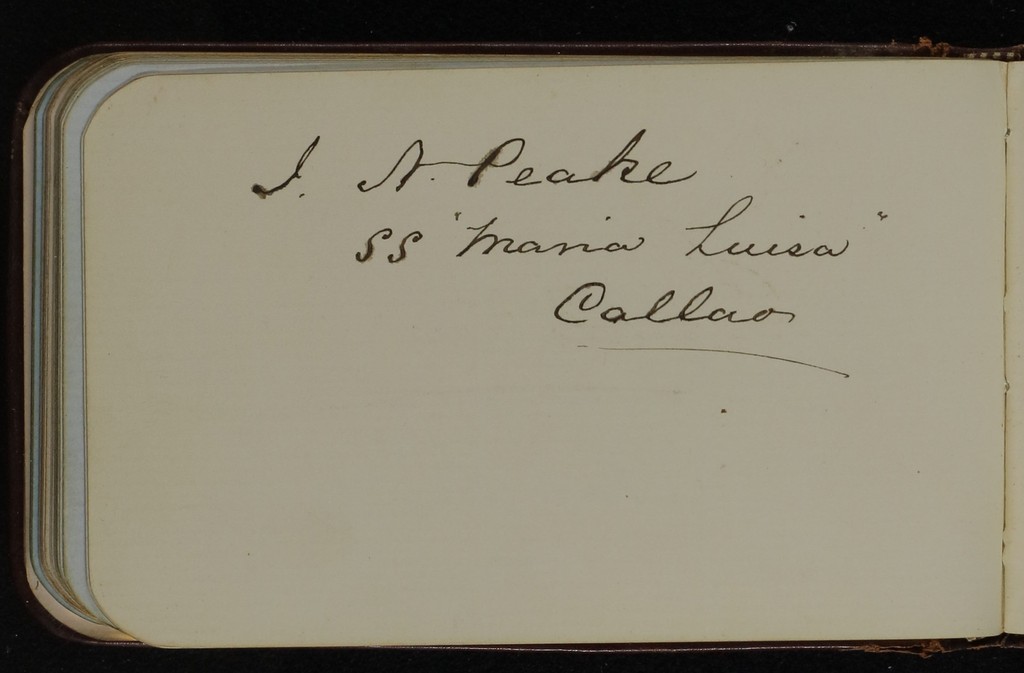 J. N. Peake
SS "Maria Luisa"
Callao